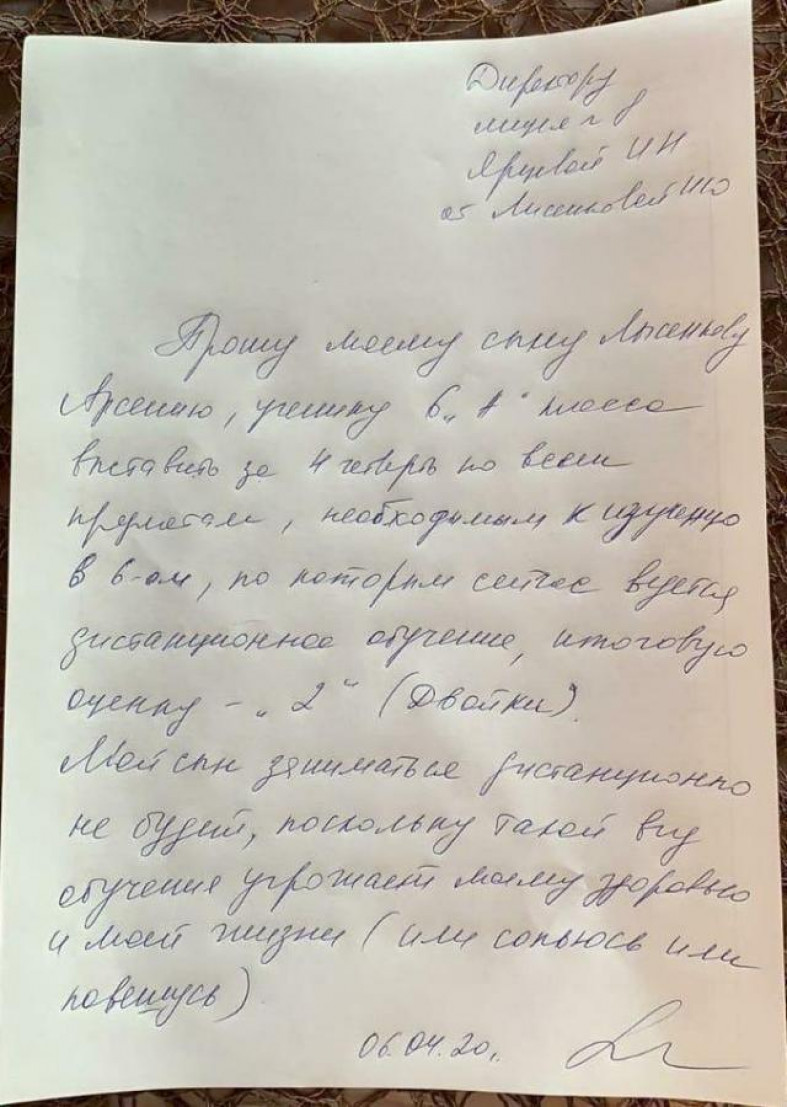 Директору
лицея № 8
Яруовой И Н
от Лысенковой И Ю
Прошу моему сыну Лысенкову
Арсению, ученику 6 „А“ класса
выставить за 4 четверть по всем
предметам, необходимым к изучению
в 6-ом, по которым сейчас ведется
дистанционное обучение, итоговую
оценку - „2“ (Двойки).
Мой сын заниматься дистанционно
не будет, поскольку такой вид
обучения угрожает моему здоровью
и моей жизни (или сопьюсь или
повешусь)
06.04.20г.